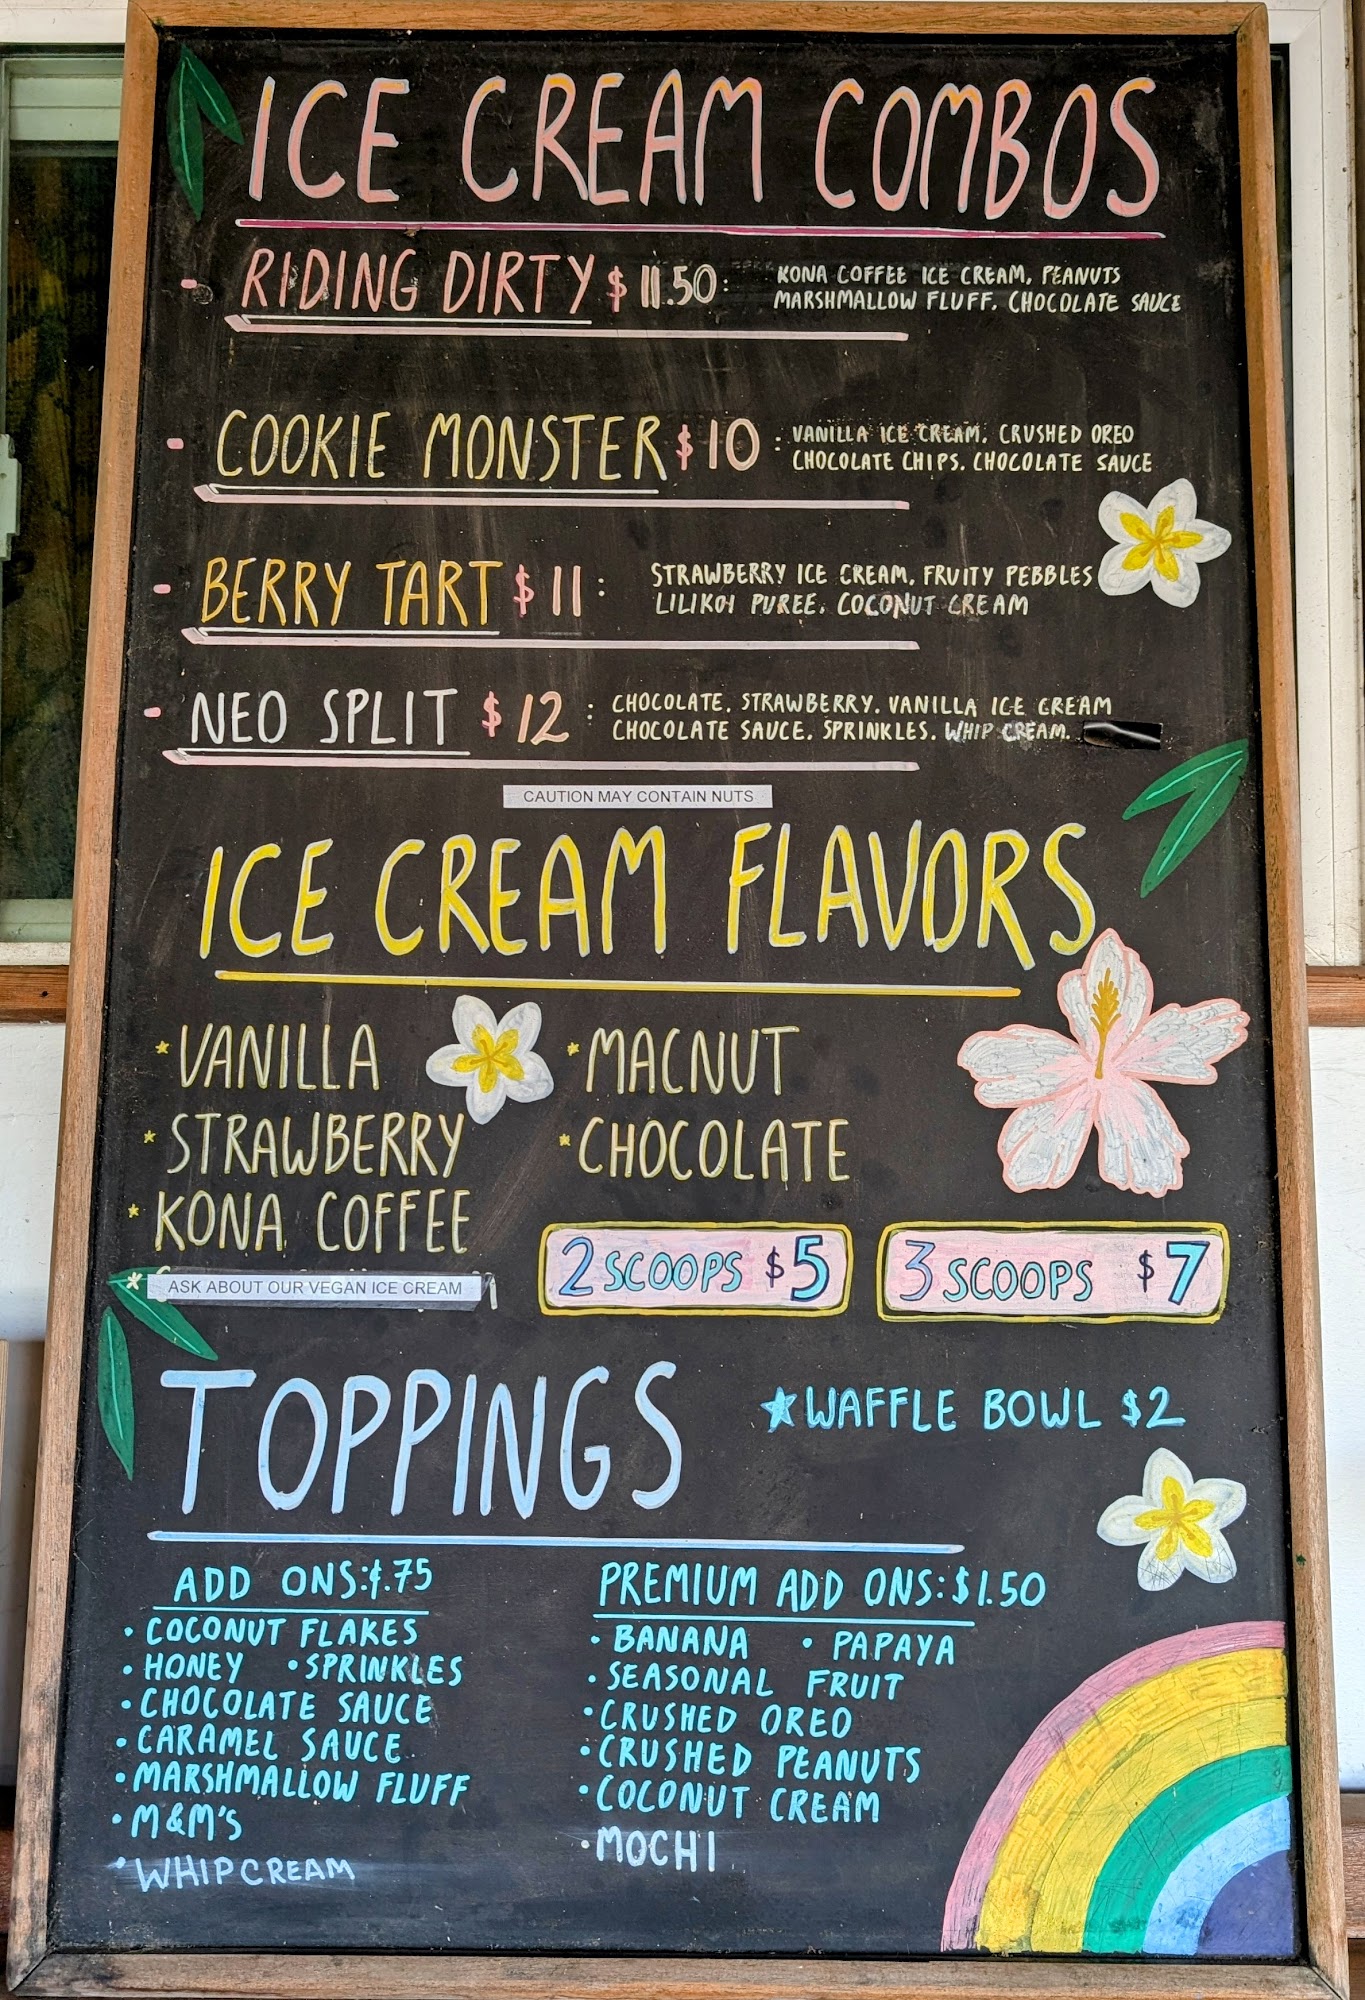 ICE CREAM COMBOS
- RIDING DIRTY $11.50:
KONA COFFEE ICE CREAM, PEANUTS
MARSHMALLOW FLUFF, CHOCOLATE SAUCE
- COOKIE MONSTER $10:
VANILLA ICE CREAM, CRUSHED OREO
CHOCOLATE CHIPS, CHOCOLATE SAUCE
- BERRY TART $11:
STRAWBERRY ICE CREAM, FRUITY PEBBLES
LILIKOI PUREE, COCONUT CREAM
- NEO SPLIT $12:
CHOCOLATE, STRAWBERRY, VANILLA ICE CREAM
CHOCOLATE SAUCE, SPRINKLES, WHIP CREAM.
CAUTION MAY CONTAIN NUTS
ICE CREAM FLAVORS
*VANILLA
*STRAWBERRY
*KONA COFFEE
ASK ABOUT OUR VEGAN ICE CREAM
*MACNUT
*CHOCOLATE
2 SCOOPS $5
3 SCOOPS $7
TOPPINGS
★WAFFLE BOWL $2
ADD ONS:¢.75
• COCONUT FLAKES
• HONEY • SPRINKLES
• CHOCOLATE SAUCE
• CARAMEL SAUCE
• MARSHMALLOW FLUFF
• M&M'S
• WHIPCREAM
PREMIUM ADD ONS:$1.50
• BANANA • PAPAYA
• SEASONAL FRUIT
• CRUSHED OREO
• CRUSHED PEANUTS
• COCONUT CREAM
• MOCHI